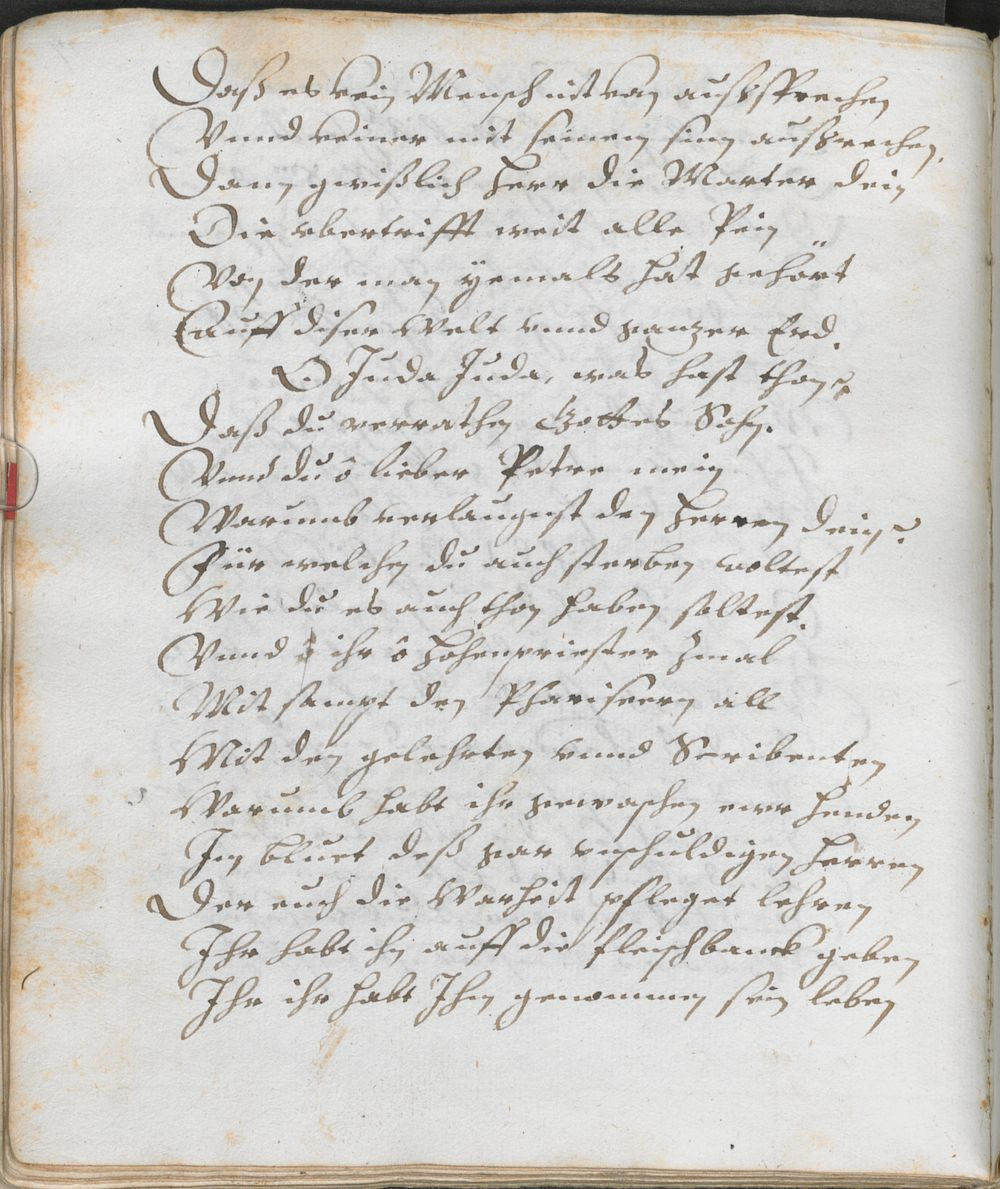 Daß es kein Mensch nit kan aussprechen
Vnnd keiner mit seinem sinn außrechen,
Dann gwißlich Herr die Marter dein
Die vbertrifft weit alle Pein
Von der man yemals hat gehört
auff diser Welt vnnd gantzer Erd.
O Juda Juda, was hast thon?
Daß du verrathen Gottes Sohn.
Vnnd du ô lieber Petre mein
Warumb verlaugnest den Herren dein?
Für welchen du auch sterben woltest
Wie du es auch thon haben soltest.
Vnnd ihr ô Hohenpriester zmal
Mit sampt den Phariseern all
Mit den gelehrten vnnd Scribenten
Warumb habt ihr gewaschen ewr Henden
Im bluet deß gar vnschuldigen Herren
Der euch die Warheit pfleget lehren
Ihr habt ihn auff die fleischbanck geben
Ihr ihr habt Ihm genommen sein leben